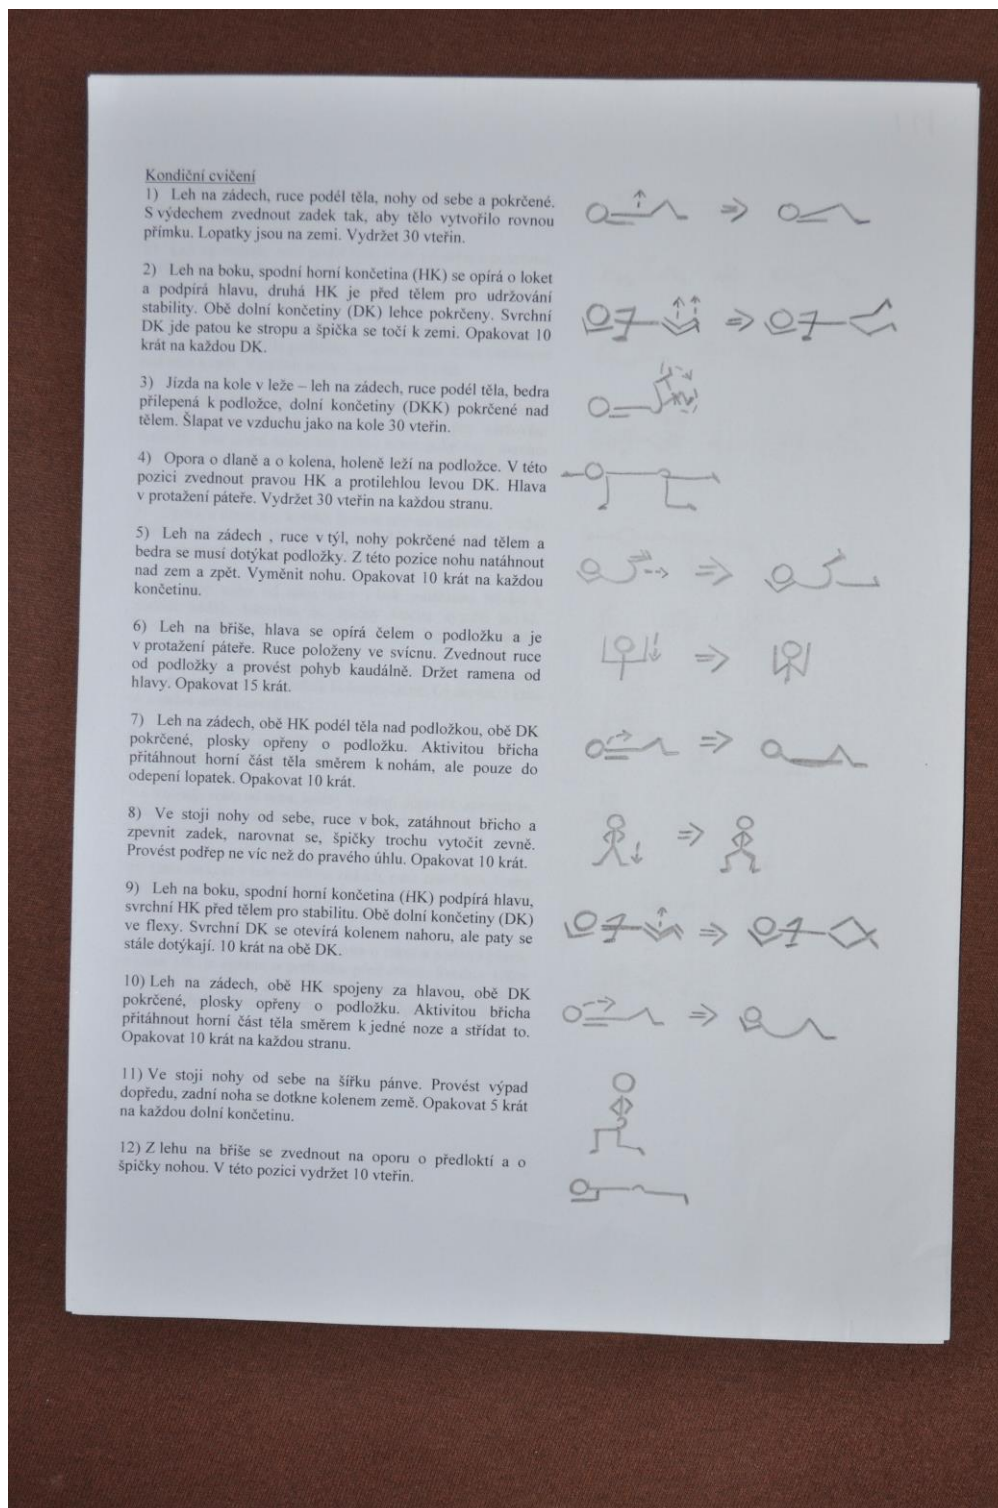 Kondiční cvičení
1) Leh na zádech, ruce podél těla, nohy od sebe a pokrčené.
S výdechem zvednout zadek tak, aby tělo vytvořilo rovnou
přímku. Lopatky jsou na zemi. Vydržet 30 vteřin.
2) Leh na boku, spodní horní končetina (HK) se opírá o loket
a podpírá hlavu, druhá HK je před tělem pro udržování
stability. Obě dolní končetiny (DK) lehce pokrčeny. Svrchní
DK jde patou ke stropu a špička se točí k zemi. Opakovat 10
krát na každou DK.
3) Jízda na kole v leže – leh na zádech, ruce podél těla, bedra
přilepená k podložce, dolní končetiny (DKK) pokrčené nad
tělem. Šlapat ve vzduchu jako na kole 30 vteřin.
4) Opora o dlaně a o kolena, holeně leží na podložce. V této
pozici zvednout pravou HK a protilehlou levou DK. Hlava
v protažení páteře. Vydržet 30 vteřin na každou stranu.
5) Leh na zádech , ruce v týl, nohy pokrčené nad tělem a
bedra se musí dotýkat podložky. Z této pozice nohu natáhnout
nad zem a zpět. Vyměnit nohu. Opakovat 10 krát na každou
končetinu.
6) Leh na břiše, hlava se opírá čelem o podložku a je
v protažení páteře. Ruce položeny ve svícnu. Zvednout ruce
od podložky a provést pohyb kaudálně. Držet ramena od
hlavy. Opakovat 15 krát.
7) Leh na zádech, obě HK podél těla nad podložkou, obě DK
pokrčené, plosky opřeny o podložku. Aktivitou břicha
přitáhnout horní část těla směrem k nohám, ale pouze do
odepení lopatek. Opakovat 10 krát.
8) Ve stoji nohy od sebe, ruce v bok, zatáhnout břicho a
zpevnit zadek, narovnat se, špičky trochu vytočit zevně.
Provést podřep ne víc než do pravého úhlu. Opakovat 10 krát.
9) Leh na boku, spodní horní končetina (HK) podpírá hlavu,
svrchní HK před tělem pro stabilitu. Obě dolní končetiny (DK)
ve flexy. Svrchní DK se otevírá kolenem nahoru, ale paty se
stále dotýkají. 10 krát na obě DK.
10) Leh na zádech, obě HK spojeny za hlavou, obě DK
pokrčené, plosky opřeny o podložku. Aktivitou břicha
přitáhnout horní část těla směrem k jedné noze a střídat to.
Opakovat 10 krát na každou stranu.
11) Ve stoji nohy od sebe na šířku pánve. Provést výpad
dopředu, zadní noha se dotkne kolenem země. Opakovat 5 krát
na každou dolní končetinu.
12) Z lehu na břiše se zvednout na oporu o předloktí a o
špičky nohou. V této pozici vydržet 10 vteřin.